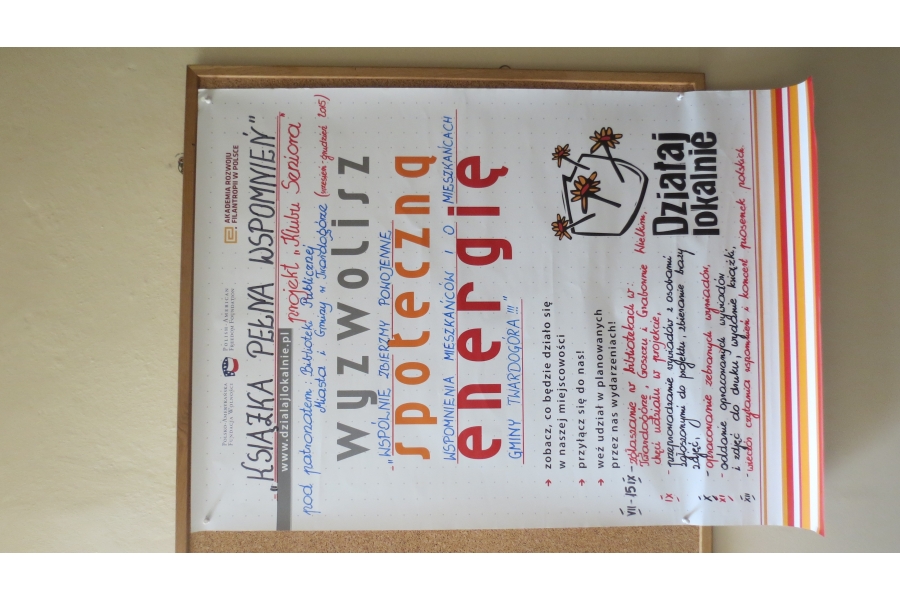 POLSKO-AMERYKAŃSKA
FUNDACJA WOLNOŚCI
POLISH-AMERICAN
FREEDOM FOUNDATION
AKADEMIA ROZWOJU
FILANTROPII W POLSCE
-"KSIĄŻKA PEŁNA WSPOMNIEŃ"
www.dzialajlokalnie.pl
projekt "Klubu Seniora"
pod patronatem: Biblioteki Publicznej
Miasta i Gminy w Twardogórze (wrzesień-grudzień 2015)
wyzwolisz
-"WSPÓLNIE ZBIERZMY POWOJENNE
społeczną
WSPOMNIENIA MIESZKAŃCÓW I O MIESZKAŃCACH
energię
GMINY TWARDOGÓRA!!!"
→ zobacz, co będzie działo się
w naszej miejscowości
→ przyłącz się do nas!
→ weź udział w planowanych
przez nas wydarzeniach!
Działaj
lokalnie
VII - 15 IX - zgłaszanie w bibliotekach w:
Twardogórze, Goszczu i Grabownie Wielkim,
chęci udziału w projekcie,
IX - przeprowadzanie wywiadów z osobami
zgłoszonymi do projektu, zbieranie bazy
zdjęć,
X - opracowanie zebranych wywiadów,
XI - oddanie opracowanych wywiadów
i zdjęć do druku, wydanie książki,
XII - wieczór czytania wspomnień i koncert piosenek polskich